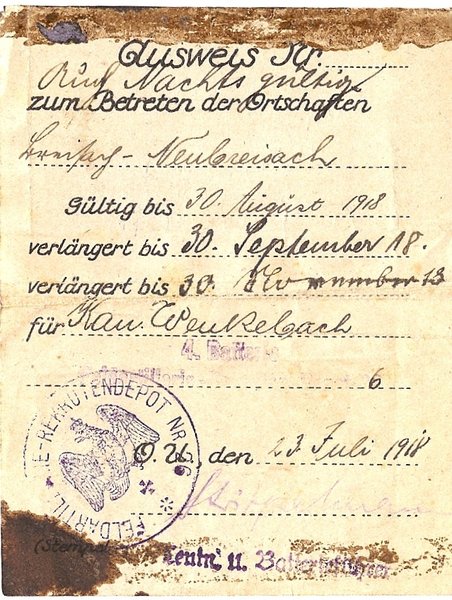 Ausweis Nr.
Auch Nachts gültig
zum Betreten der Ortschaften
Breisach - Neubreisach
Gültig bis 30 August 1918
verlängert bis 30. September 18.
verlängert bis 30. November 18
für Kan. Wenkelbach
4. Batterie
6
O. U., den 23 Juli 1918
FELDARTILLERIE-REKRUTENDEPOT NR. 6
(Stempel
Leutn. u. Batterieführer